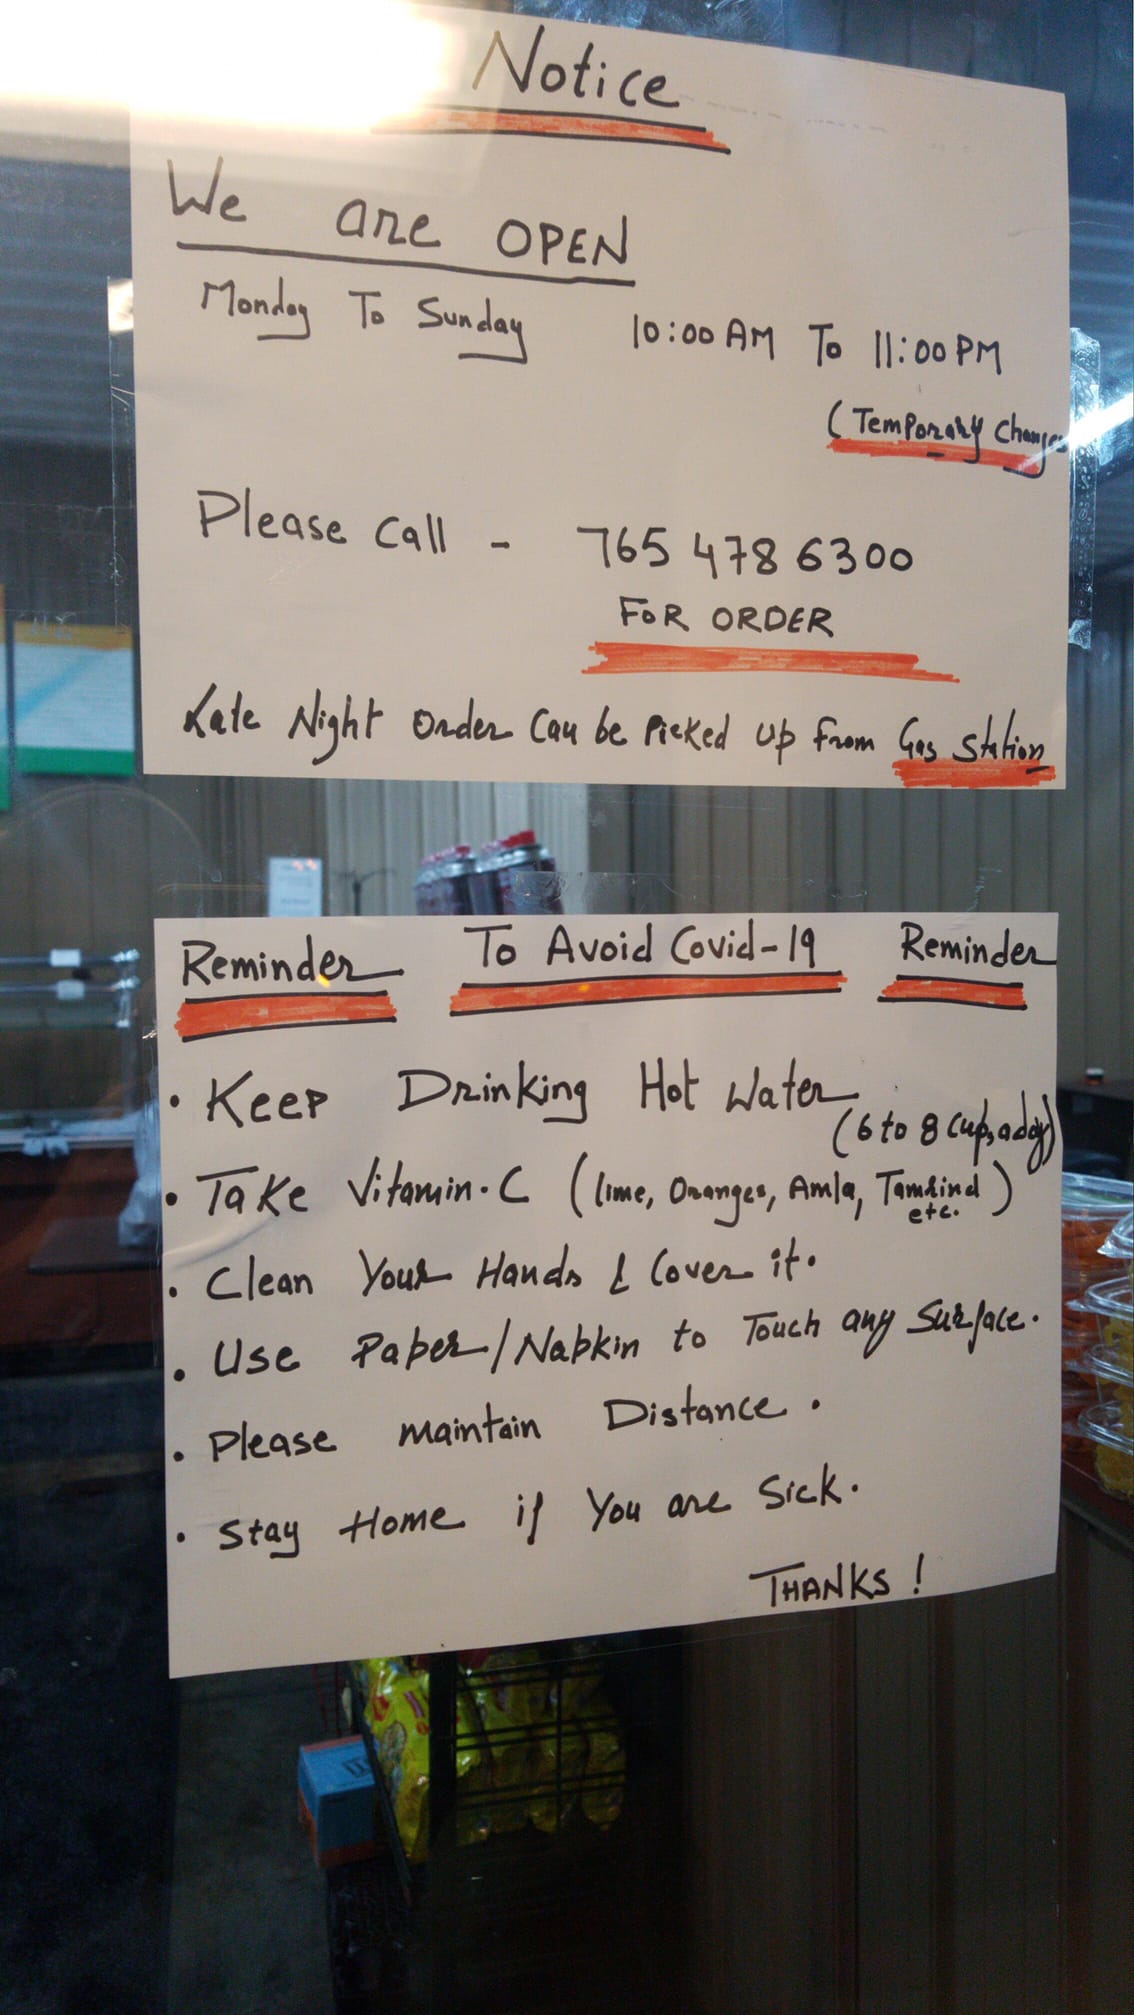 Notice
We are OPEN
Monday To Sunday 10:00 AM To 11:00 PM
(Temporary Changes
Please Call - 765 478 6300
FOR ORDER
Late Night Order Can be Picked Up From Gas Station
Reminder To Avoid Covid-19 Reminder
• Keep Drinking Hot Water
(6 to 8 Cups a day)
• Take Vitamin.C (lime, Oranges, Amla, Tamrind
etc. )
• Clean Your Hands & Cover it.
• Use Paper/Napkin to Touch any Surface.
• Please maintain Distance.
• Stay Home if You are Sick.
THANKS!